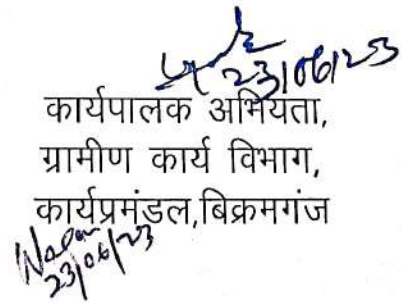 23/06/23
कार्यपालक अभियंता,
ग्रामीण कार्य विभाग,
कार्यप्रमंडल,बिक्रमगंज
23/06/23